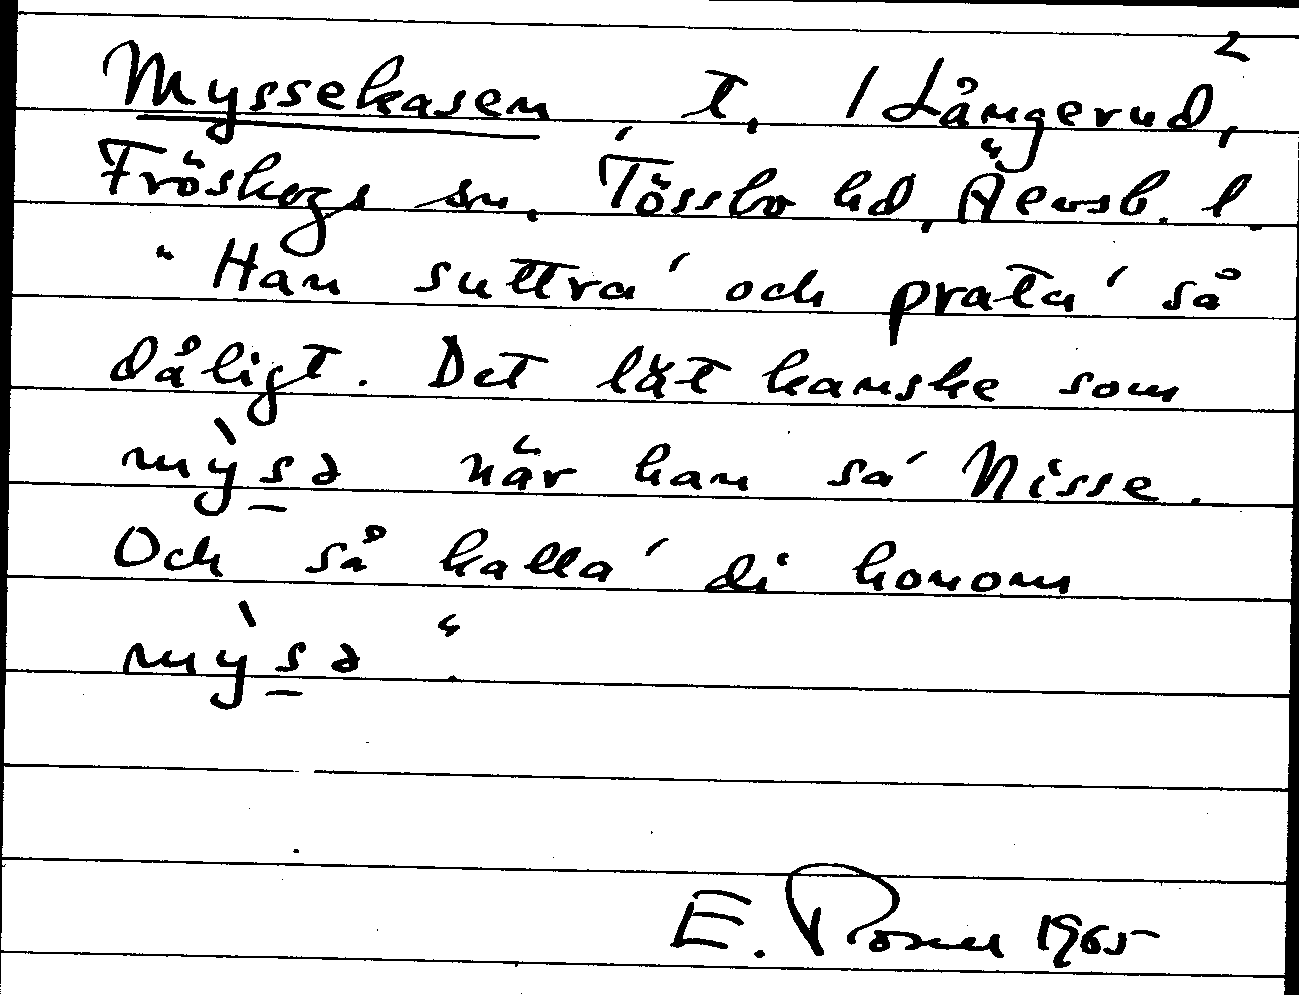 Myssekasen t. 1 Långerud, 2
Fröskogs sn. Tössbo hd, Älvsb. l.
"Han suttra' och prata' så
dåligt. Det lät kanske som
mỳsə när han sa' Nisse.
Och så kalla' di honom
mỳsə".
E. 1965